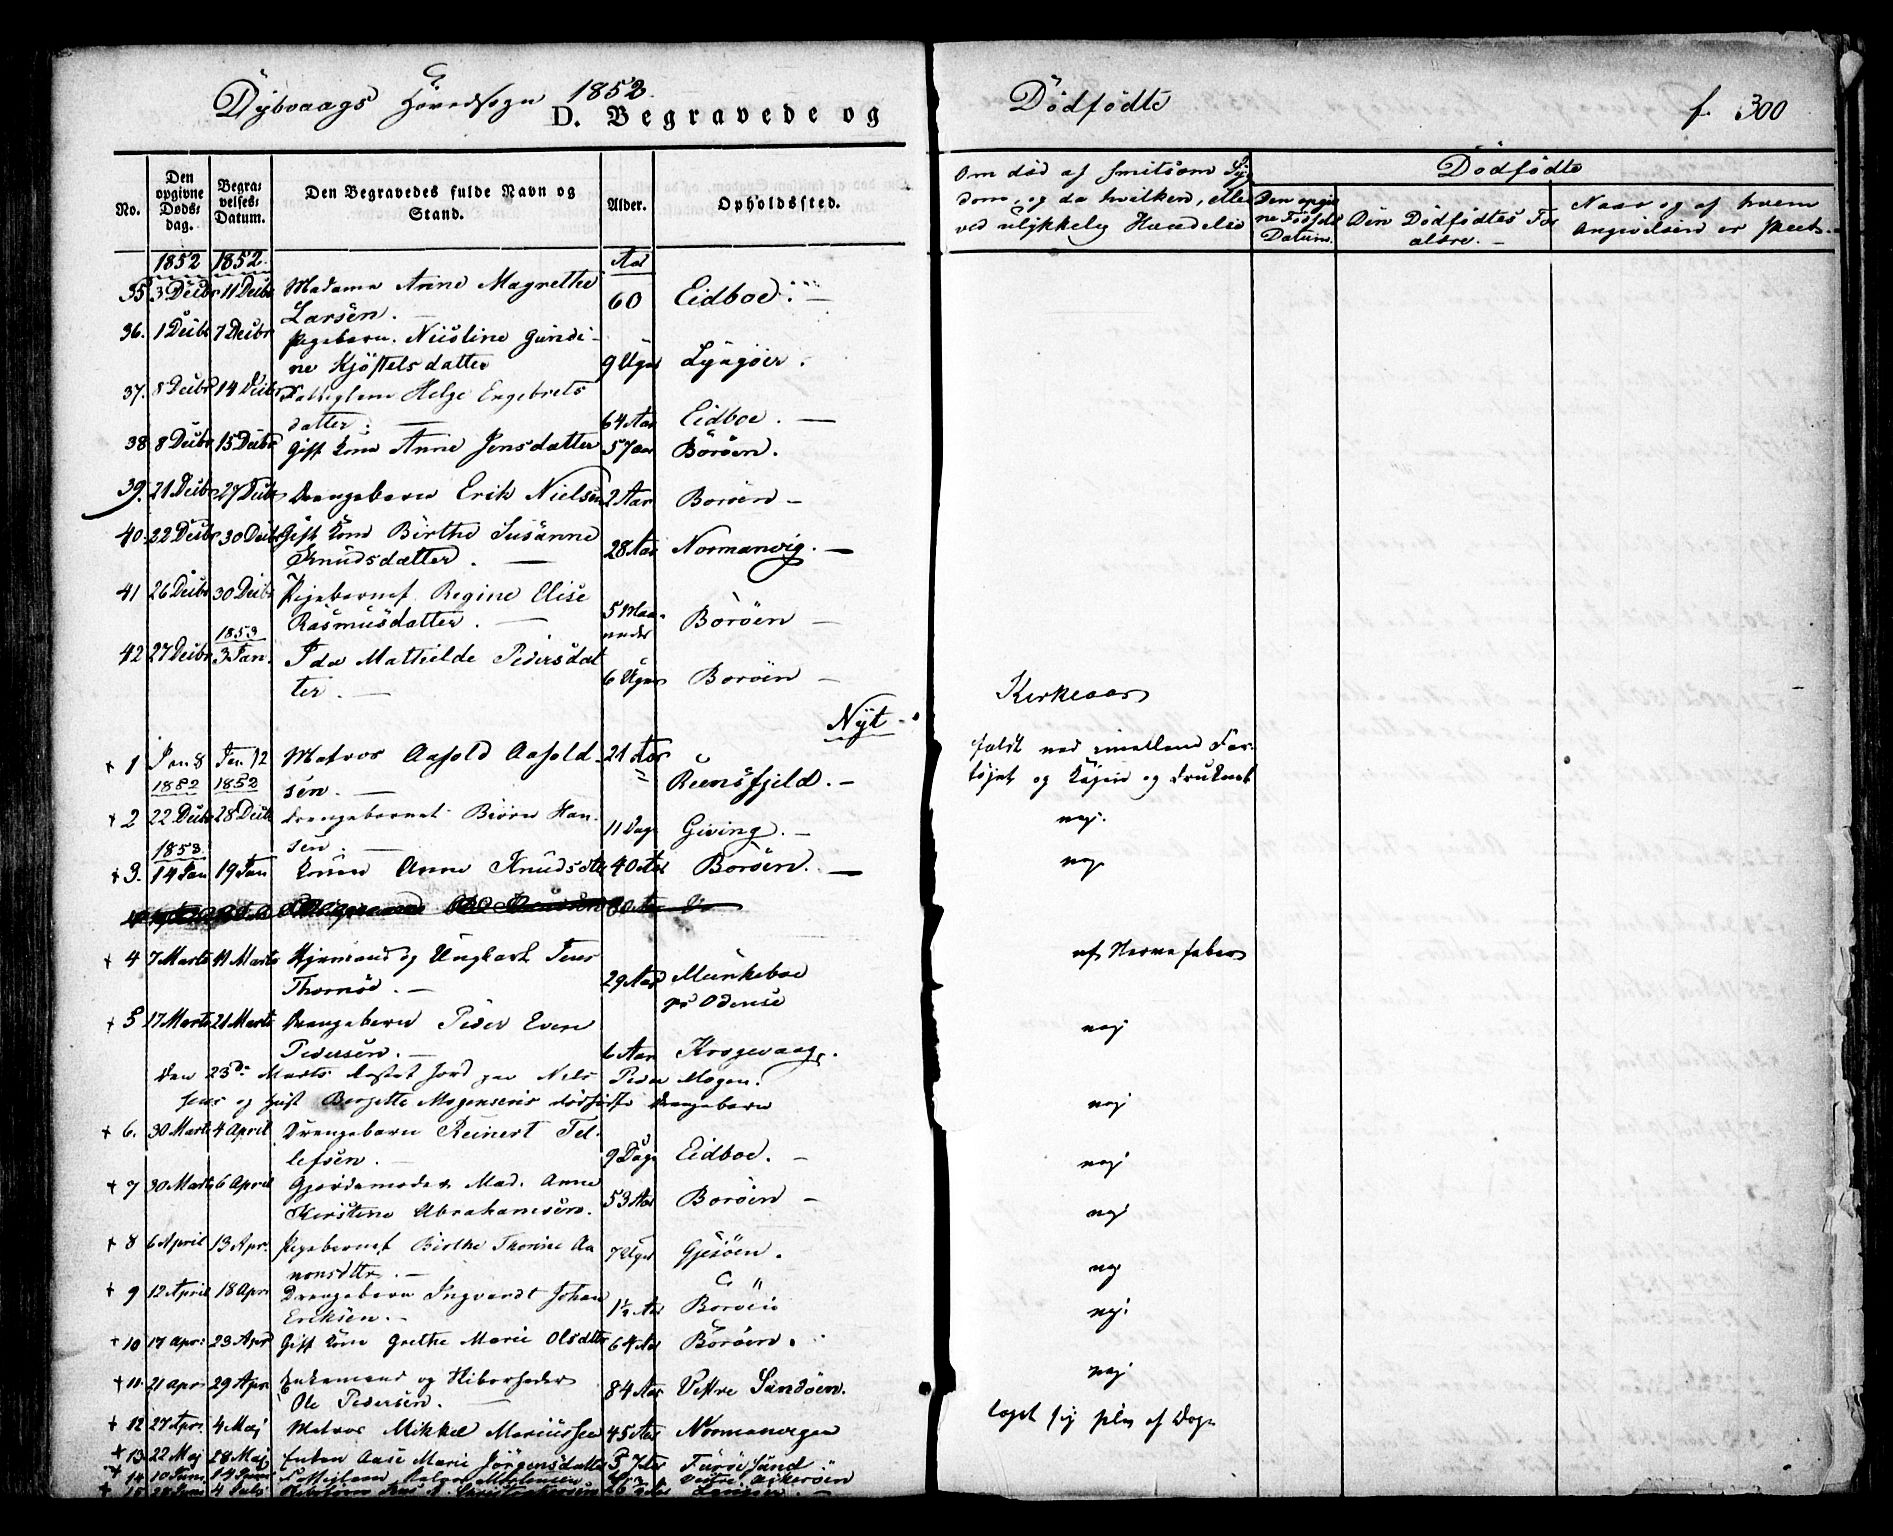 Dybvaags Hovedsogn 1852.
D. Begravede og
Dødfødte
f. 300
No.
Den opgivne Døds-dag.
Begra-velses-Datum.
Den Begravedes fulde Navn og Stand.
Alder.
Opholdssted.
Om død af smitsom Syg
dom, og da hvilken, eller
ved ulykkelig Hændelse
Dødfødte
Den opgiv
ne Fødsels
Datum.
Den Dødfødtes For
ældre. -
Naar og af hvem
Angivelsen er skeet. -
1852 1852. Aar
35 3 Decbr 11 Decbr Madame Anne Magrethe
Larsen. - 60 Eidboe. -
36. 1 Decbr 7 Decbr Pigebarn. Nicoline Gundi-
ne Kjøstelsdatter 9 Uger Lyngøer.
37. 8 Decbr 14 Decbr Fattiglem Helge Engebrets
datter. - 64 Aar Eidboe. -
38 8 Decbr 15 Decbr Gift Kone Anne Jensdatter 57 Aar Borøen.
39. 21 Decbr 27 Decbr Drengebarn Erik Nielsen 2 Aar Borøen -
40. 22 Decbr 30 Decbr Gift Kone Birthe Susanne
Knudsdatter. - 28 Aar Normanvig. -
41 26 Decbr 30 Decbr Pigebarnet Regine Elise
Rasmusdatter. - 5 Maa-
neder Borøen -
1853
42 27 Decbr 3 Jan. Ida Mathilde Pedersdat
ter. - 6 Uger Borøen -
Nyt - Kirkeaar
+ 1 Jan 8 Jan 12 Matros Aasold Aasold-
sen. - 21 Aar Reensfjeld. - faldt ned imellem Far-
tøjet og Kajen og druknet
1852 1852
+ 2 22 Decbr 28 Decbr Drengebarnet Biørn Han-
sen. - 11 Dage Giving. - nej.
1853.
+ 3. 14 Jan 19 Jan Konen Anne Knudsdtr 40 Aar Borøen. - nej
80 Aar
+ 4 7 Marts 11 Marts Styrmand og Ungkarl Jens
Thornøe. - 29 Aar Munkeboe
pr Odense af Nervefeber
+ 5 17 Marts 21 Marts Drengebarn Peder Even
Pedersen. - 6 Aar Krogevaag. nej
Den 23de Marts kastet Jord paa Niels Peder Mogen-
sens og Hust Bergette Mogensens dødfødte Drengebarn nej
+ 6. 30 Marts 4 April Drengebarn Reinert Tel-
lefsen. - 9 Dage Eidboe. - nej
+ 7 30 Marts 6 April Gjordemoder Mad. Anne
Kirstine Abrahamsen. 53 Aar Borøen - nej
+ 8 6 April 13 Apr. Pigebarnet Birthe Thomine Aa
nonsdtr. - 7 Uger Gjesøen. nej
+ 9 12 April 18 Apr Drengebarn Ingvardt Johan
Eriksen. - 1½ Aar Borøen nej.
+ 10 17 Apr: 23 Apr Gift Kone Grethe Marie Olsdtr 64 Aar Borøen.
+ 11. 21 Apr 29 Apr. Enkemand og
Ole Pedersen. - 84 Aar Vestre Sandøen. nej
+ 12 27 Apr. 4 Maj Matros Mikkel Mariussen 45 Aar Normanvigen taget sig selv af Dage
+ 13 22 Maj 28 Maj Enken Aase Marie Jørgensdatter Furøesund
+ 14 10 Juni 14 Juni Vestre Askerøen
+ 15 4 Juli Lyngør -